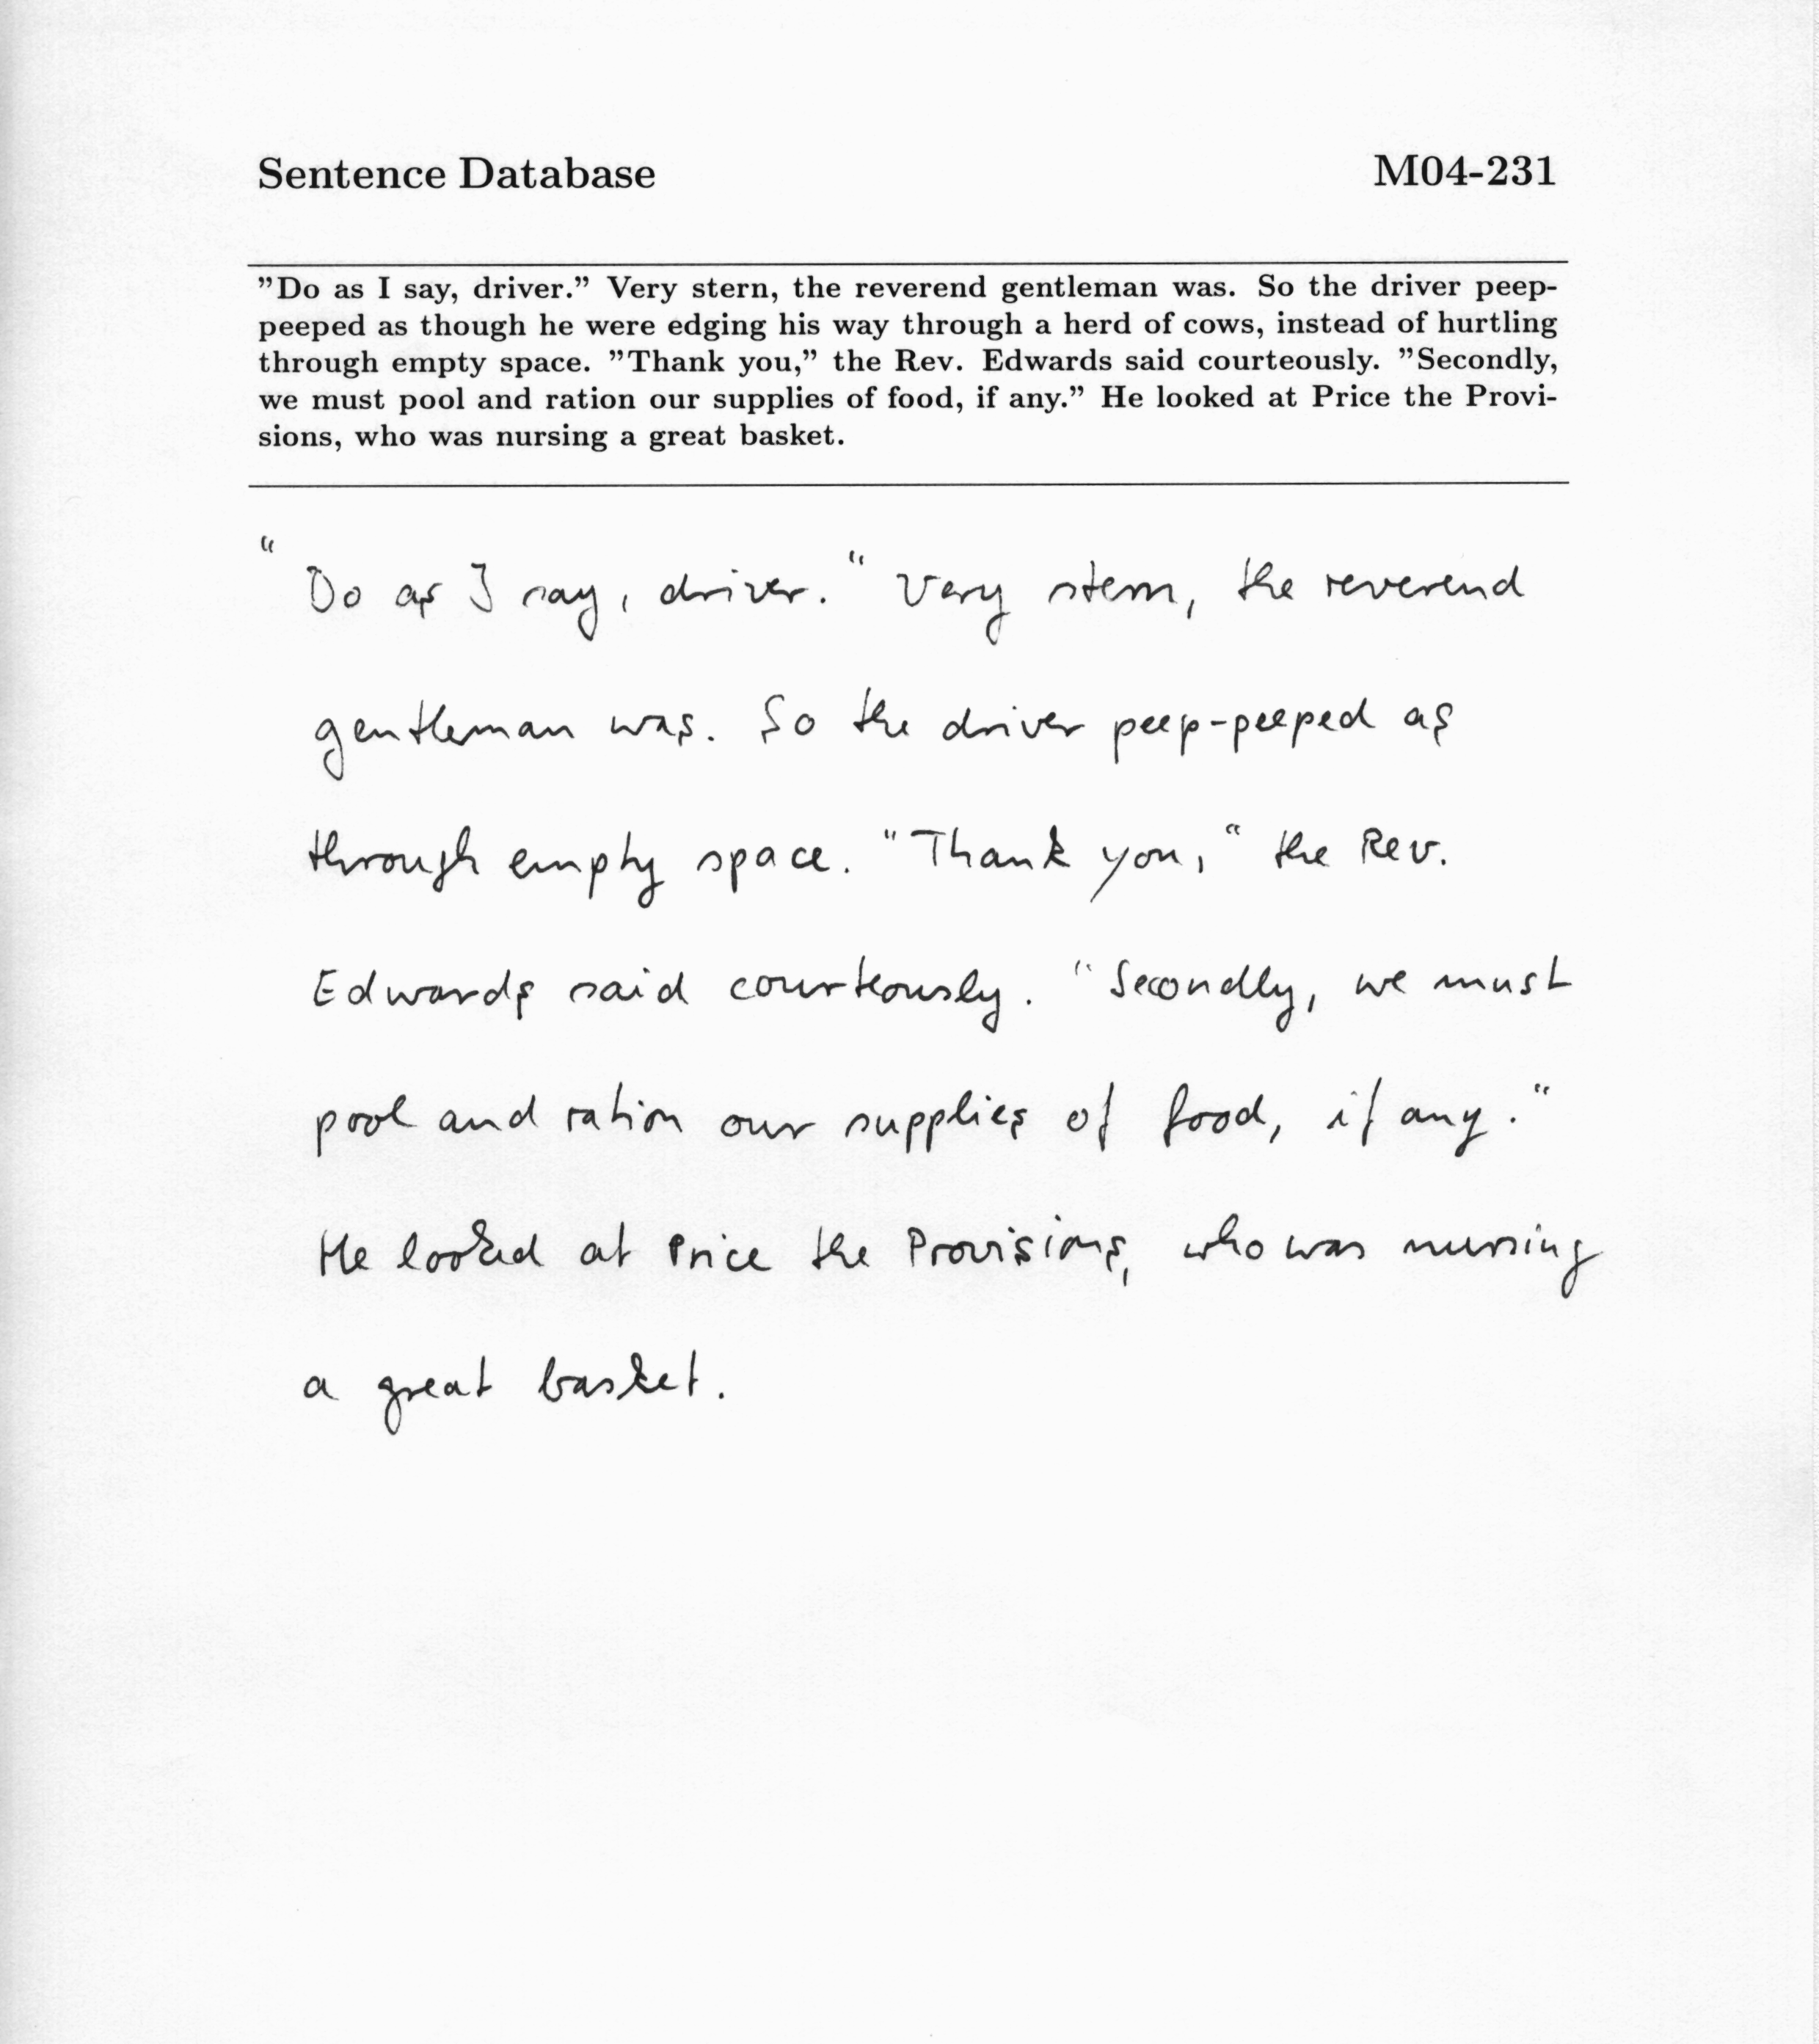 Sentence Database M04-231
"Do as I say, driver." Very stern, the reverend gentleman was. So the driver peep-
peeped as though he were edging his way through a herd of cows, instead of hurtling
through empty space. "Thank you," the Rev. Edwards said courteously. "Secondly,
we must pool and ration our supplies of food, if any." He looked at Price the Provi-
sions, who was nursing a great basket.
"Do as I say, driver." Very stern, the reverend
gentleman was. So the driver peep-peeped as
through empty space. "Thank you," the Rev.
Edwards said courteously. "Secondly, we must
pool and ration our supplies of food, if any."
He looked at Price the Provisions, who was nursing
a great basket.